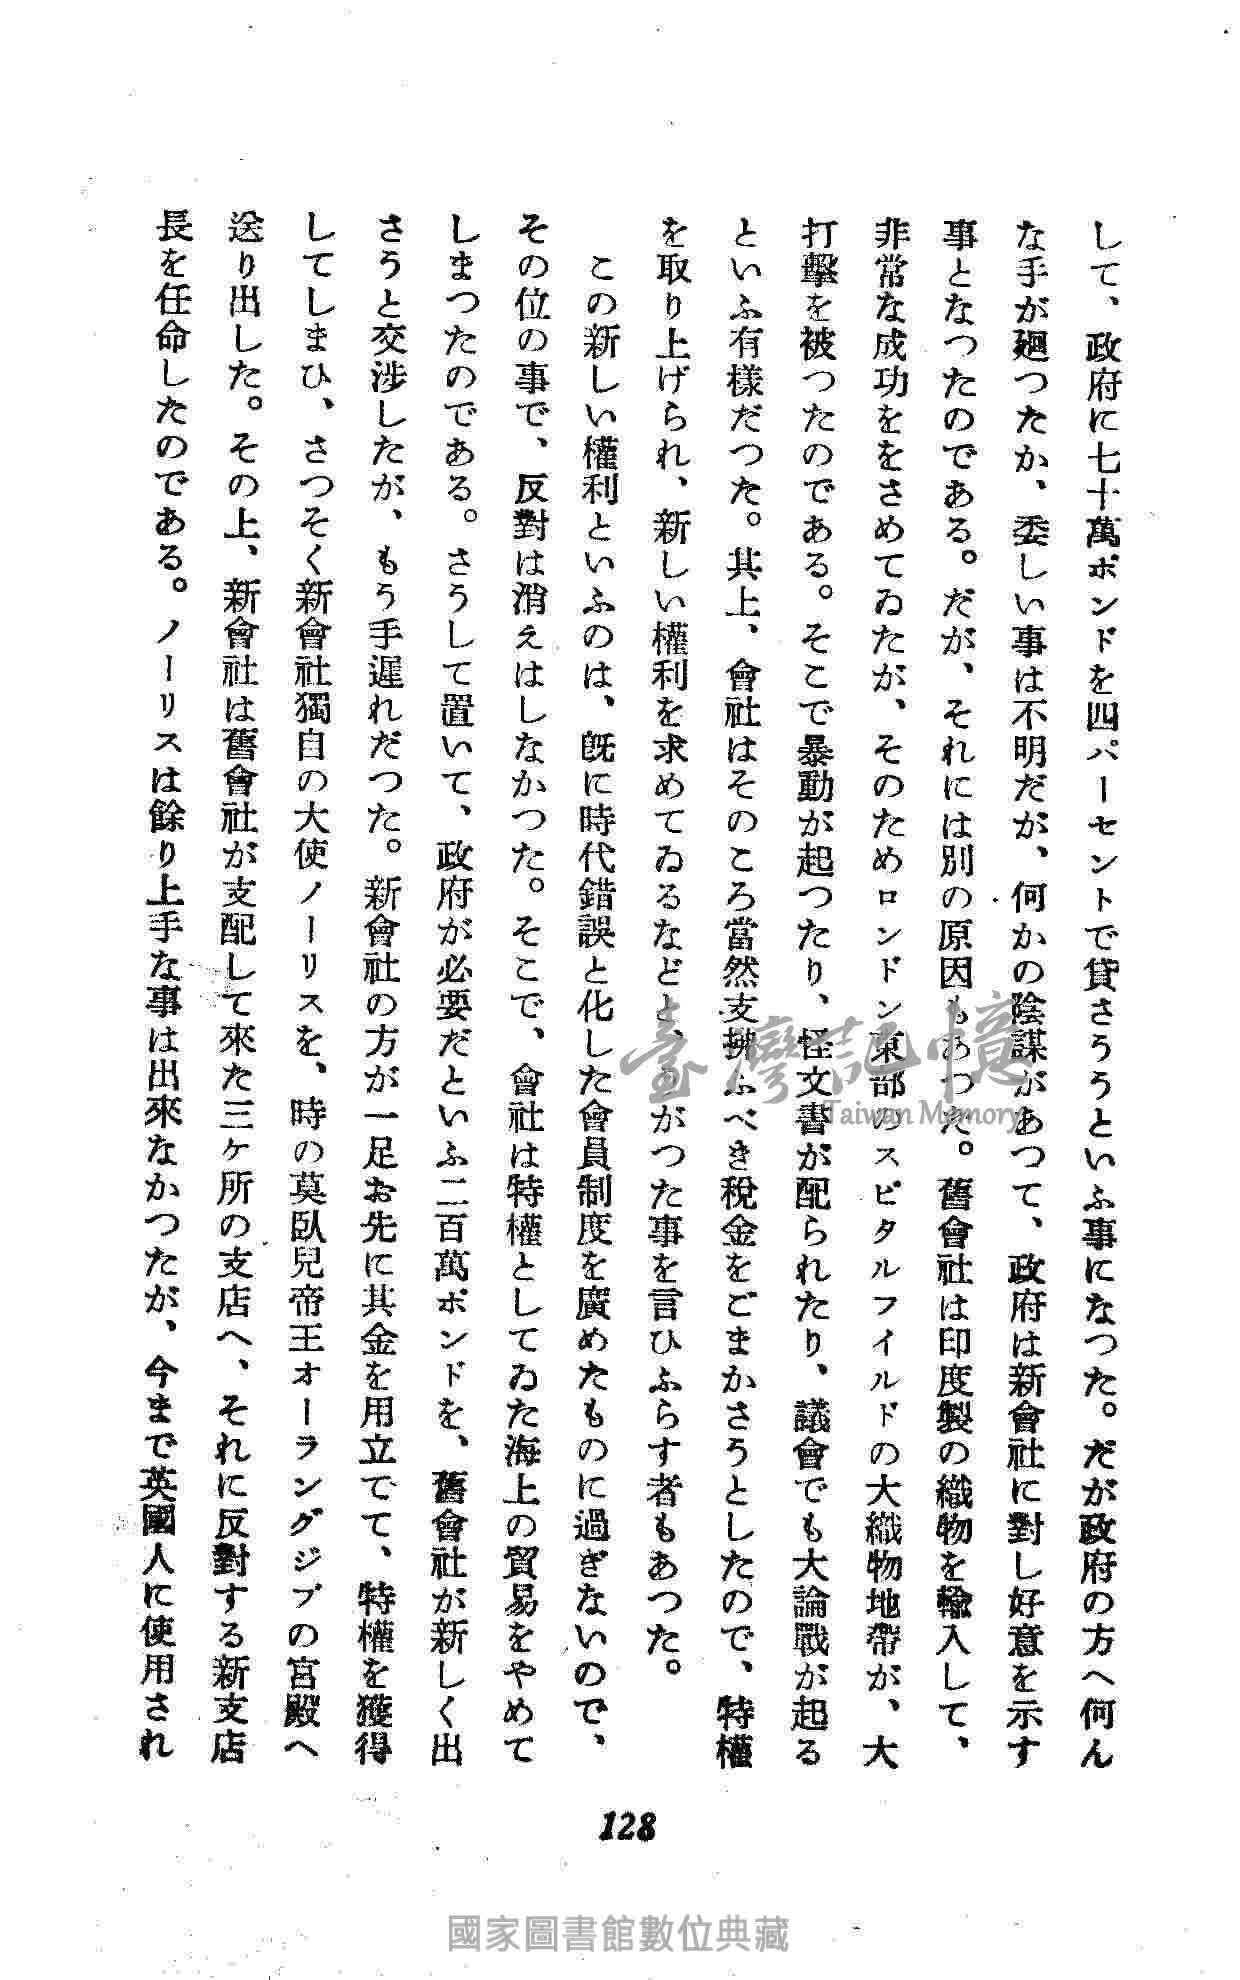 して、政府に七十萬ポンドを四パーセントで貸さうといふ事になつた。だが政府の方へ何ん
な手が廻つたか、委しい事は不明だが、何かの陰謀があつて、政府は新會社に對し好意を示す
事となつたのである。だが、それには別の原因もあつた。舊會社は印度製の織物を輸入して、
非常な成功ををさめてゐたが、そのためロンドン東部のスピタルフイルドの大織物地帶が、大
打擊を被つたのである。そこで暴動が起つたり、怪文書が配られたり、議會でも大論戰が起る
といふ有樣だつた。其上、會社はそのころ當然支拂ふべき稅金をごまかさうとしたので、特權
を取り上げられ、新しい權利を求めてゐるなどと、うがつた事を言ひふらす者もあつた。
この新しい權利といふのは、既に時代錯誤と化した會員制度を廣めたものに過ぎないので、
その位の事で、反對は消えはしなかつた。そこで、會社は特權としてゐた海上の貿易をやめて
しまつたのである。さうして置いて、政府が必要だといふ二百萬ポンドを、舊會社が新しく出
さうと交涉したが、もう手遲れだつた。新會社の方が一足お先に其金を用立てて、特權を獲得
してしまひ、さつそく新會社獨自の大使ノーリスを、時の莫臥兒帝王オーラングジブの宮殿へ
送り出した。その上、新會社は舊會社が支配して來た三ケ所の支店へ、それに反對する新支店
長を任命したのである。ノーリスは餘り上手な事は出來なかつたが、今まで英國人に使用され
128
臺灣記憶
Taiwan Memory
國家圖書館數位典藏